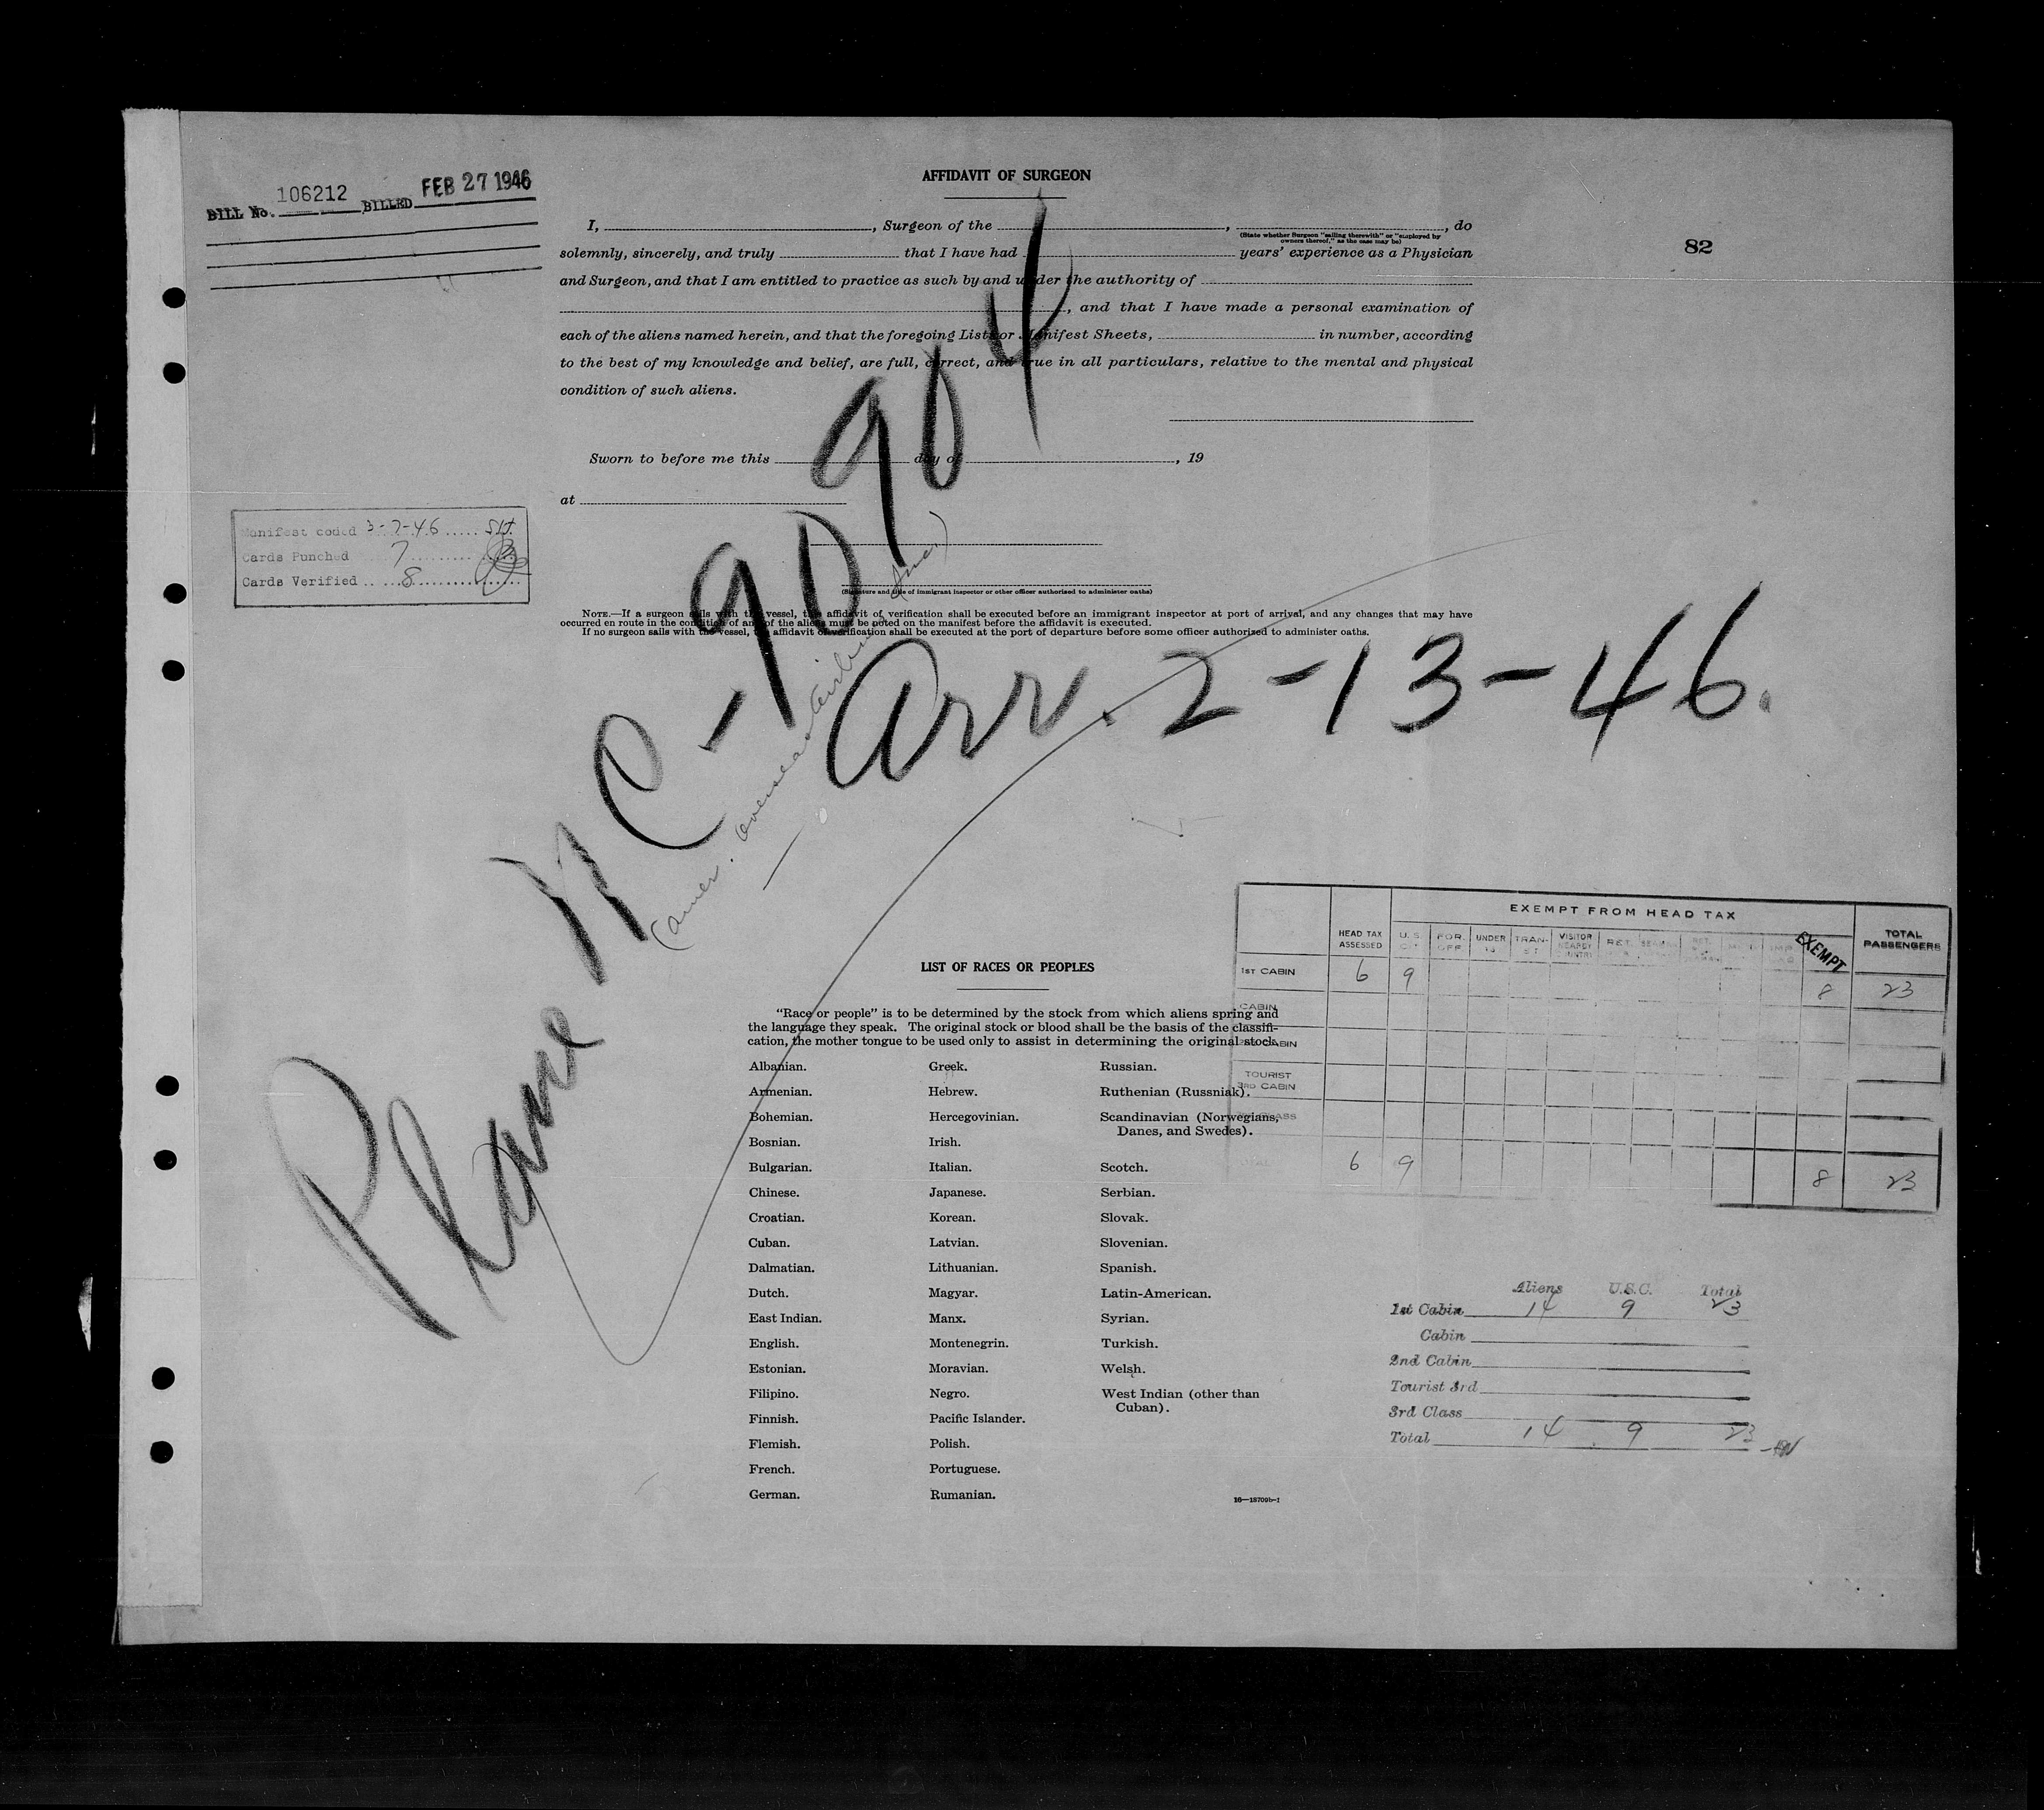 BILL No. 106212 BILLED FEB 27 1946
AFFIDAVIT OF SURGEON
82
I, , Surgeon of the , , do
(State whether Surgeon "sailing therewith" or "employed by
owners thereof," as the case may be)
solemnly, sincerely, and truly that I have had years' experience as a Physician
and Surgeon, and that I am entitled to practice as such by and under the authority of
, and that I have made a personal examination of
each of the aliens named herein, and that the foregoing Lists or Manifest Sheets, in number, according
to the best of my knowledge and belief, are full, correct, and true in all particulars, relative to the mental and physical
condition of such aliens.
Sworn to before me this day of , 19
at
(Signature and title of immigrant inspector or other officer authorized to administer oaths)
Manifest coded 3-7-46
Cards Punched 7
Cards Verified 8
NOTE.—If a surgeon sails with the vessel, this affidavit of verification shall be executed before an immigrant inspector at port of arrival, and any changes that may have
occurred en route in the condition of any of the aliens must be noted on the manifest before the affidavit is executed.
If no surgeon sails with the vessel, the affidavit of verification shall be executed at the port of departure before some officer authorized to administer oaths.
Plane NC-90904
(Amer. Overseas Airlines Inc.)
Arr. 2-13-46.
LIST OF RACES OR PEOPLES
"Race or people" is to be determined by the stock from which aliens spring and
the language they speak. The original stock or blood shall be the basis of the classifi-
cation, the mother tongue to be used only to assist in determining the original stock.
Albanian.
Armenian.
Bohemian.
Bosnian.
Bulgarian.
Chinese.
Croatian.
Cuban.
Dalmatian.
Dutch.
East Indian.
English.
Estonian.
Filipino.
Finnish.
Flemish.
French.
German.
Greek.
Hebrew.
Hercegovinian.
Irish.
Italian.
Japanese.
Korean.
Latvian.
Lithuanian.
Magyar.
Manx.
Montenegrin.
Moravian.
Negro.
Pacific Islander.
Polish.
Portuguese.
Rumanian.
Russian.
Ruthenian (Russniak).
Scandinavian (Norwegians,
Danes, and Swedes).
Scotch.
Serbian.
Slovak.
Slovenian.
Spanish.
Latin-American.
Syrian.
Turkish.
Welsh.
West Indian (other than
Cuban).
16—18709b-1
EXEMPT FROM HEAD TAX
HEAD TAX ASSESSED U.S. CIT FOR. OFF. UNDER 16 TRAN-SIT VISITOR NEARBY COUNTRY RET. EXEMPT TOTAL PASSENGERS
1ST CABIN 6 9 8 23
CABIN
CABIN
TOURIST
3RD CABIN
CLASS
6 9 8 23
Aliens U.S.C. Total
1st Cabin 14 9 23
Cabin
2nd Cabin
Tourist 3rd
3rd Class
Total 14 9 23